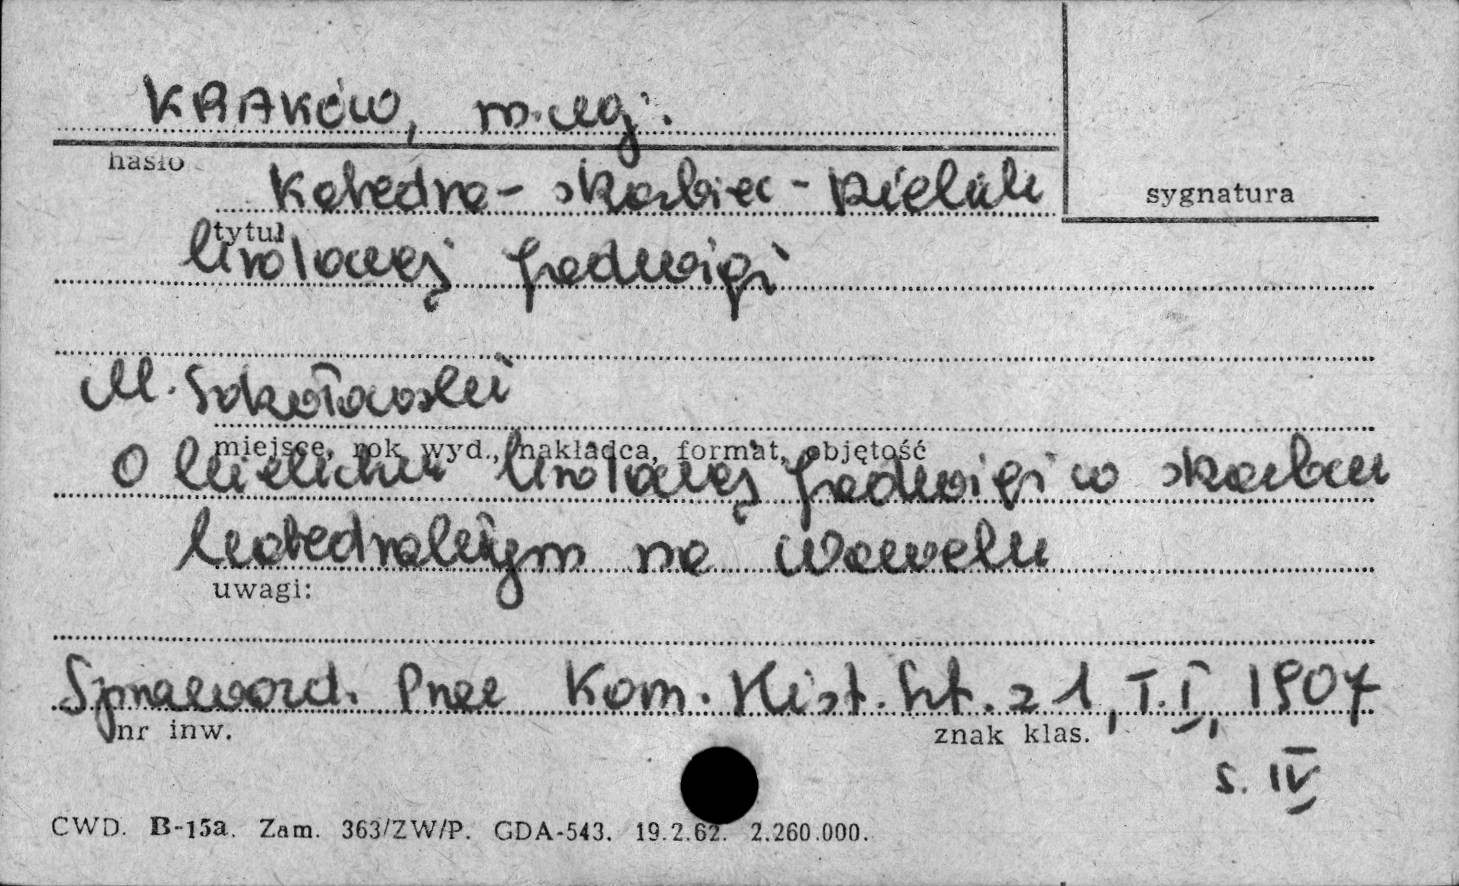 KRAKÓW, m. woj.
hasło
Katedra - skarbiec - Kielich
sygnatura
tytuł
królowej Jadwigi
M. Sokołowski
miejsce, rok wyd., nakładca, format, objętość
O kielichu królowej Jadwigi w skarbcu
katedralnym na Wawelu
uwagi:
Sprawozd. Prac Kom. Hist. Szt. z 1, T. I, 1907
nr inw.
znak klas.
s. IV
CWD. B-15a. Zam. 363/ZW/P. GDA-543. 19.2.62. 2.260.000.